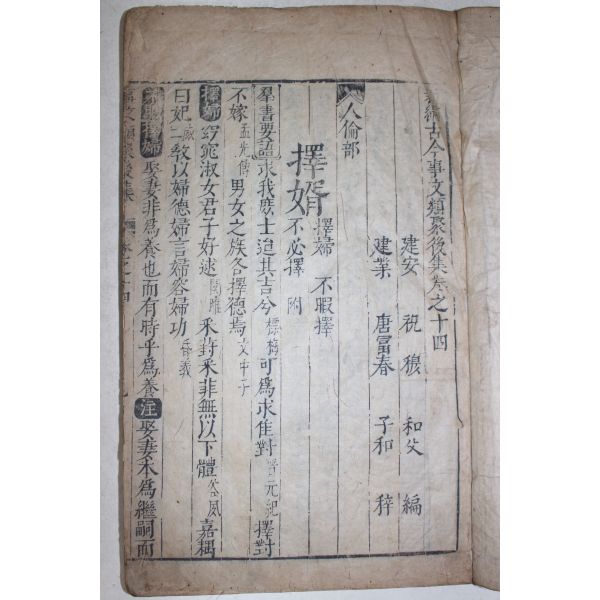 新編古今事文類聚後集卷之十四
建安 祝穆 和父 編
建業 唐冨春 子和 梓
人倫部
擇壻 擇婦 不暇擇 不必擇 附
羣書要語 求我庶士迨其吉兮 摽梅 可爲求佳對 晉元紀 擇對
不嫁 孟光傳 男女之族各擇德焉 文中子
擇婦 窈窕淑女君子好逑 關雎 采葑采菲無以下體 谷風 嘉耦
曰妃 二 敎以婦德婦言婦容婦功 昏義
不暇擇婦 娶妻非爲養也而有時乎爲養 注 娶妻本爲繼嗣而
事文類聚後集 卷之十四